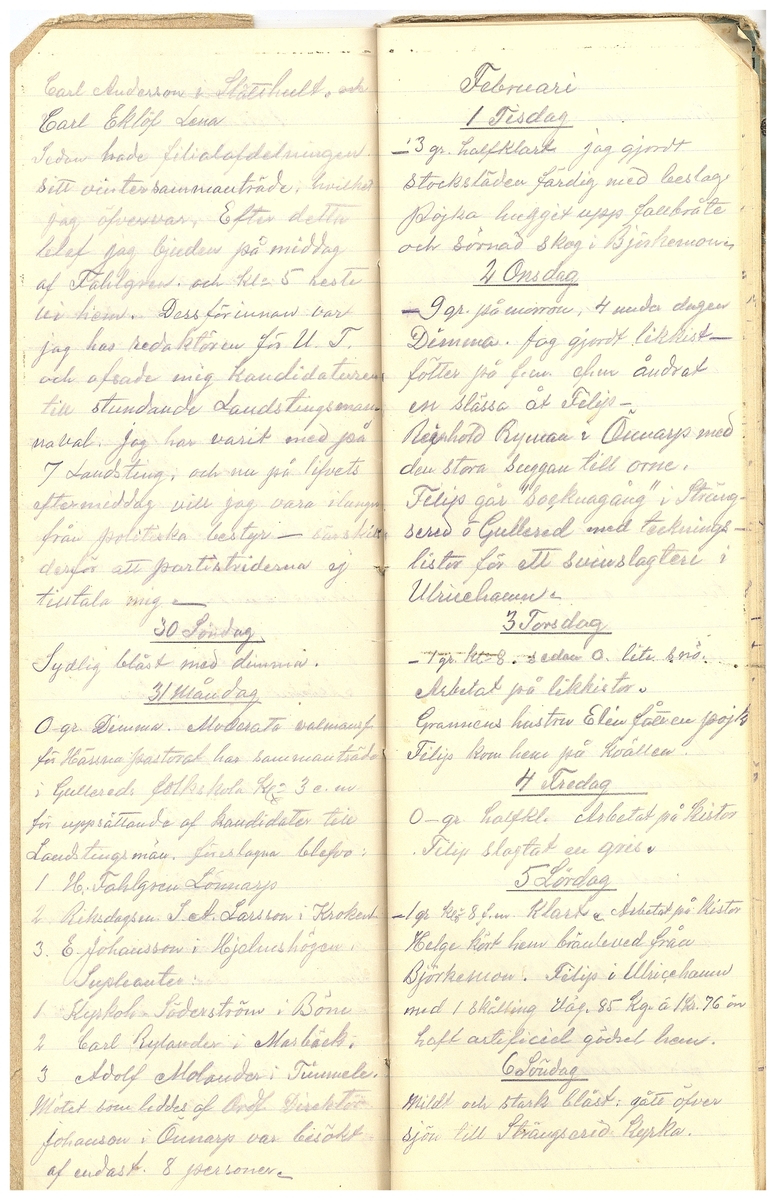 Carl Anderson i Slätthult. och
Carl Eklöf Lena
Sedan hade filialafdelningen
sitt vintersammanträde, hvilket
jag öfvervar. Efter detta
blef jag bjuden på middag
af Fahlgren. och kl= 5 reste
vi hem. Dessförinnan var
jag hos redaktören för U. T.
och afsade mig kandidaturen
till stundande Landstingsman-
naval. jag har varit med på
7 Landsting, och nu på lifvets
eftermiddag vill jag vara i lugn
från politiska bestyr —
derför att partistriderna ej
tilltala mig —
30 Söndag
Sydlig blåst med dimma.
31 Måndag
0-gr Dimma. Moderata valmansf
för Hössna pastorat har sammanträde
i Gullereds folkskola Kl= 3 e. m
för uppsättande af kandidater till
Landstingsmän. föreslagna blefvo:
1 H. Fahlgren Lönnarp
2 Riksdagsm J. A. Larsson i Kroken
3. E. Johansson i Hjelmshögen.
Supleanter:
1 Kyrkoh. Söderström i Böne
2 Carl Rylander i Marbäck.
3 Adolf Molander i Timmele.
Mötet som leddes af Ordf Direktör
Johanson i Önnarp var besökt
af endast. 8 personer.
Februari
1 Tisdag
-3 gr. halfklart jag gjordt
stockstäden färdig med beslag
Pojka hugget upp
och sörnad skog i Björkemon
2 Onsdag
-9 gr. på morron, 4 under dagen
Dimma. Jag gjordt likkist-
fötter på f.m. e.m ändrat
en slässa åt Filip-
Reinhold Ryman i Önnarp med
den stora suggan till orne.
Filip går "socknagång" i Sträng-
sered o Gullered med tecknings-
listor för ett svinslagteri i
Ulricehamn.
3 Torsdag
-1 gr. kl= 8. sedan 0. lite snö.
Arbetat på likkistor.
Grannens hustru Elin fått en pojk
Filip kom hem på kvällen.
4 Fredag
0- gr halfkl. Arbetat på kistor
Filip slagtat en gris.
5 Lördag
-1 gr kl= 8 f.m klart. Arbetat på kistor
Helge kört hem bränleved från
Björkemon. Filip i Ulricehamn
med 1 Skälling Väg. 85 Kg. á 1 Kr. 76 ön
haft artificiel gödsel hem.
6 Söndag
Mildt och stark blåst: gått öfver
sjön till Strängserid kyrka.